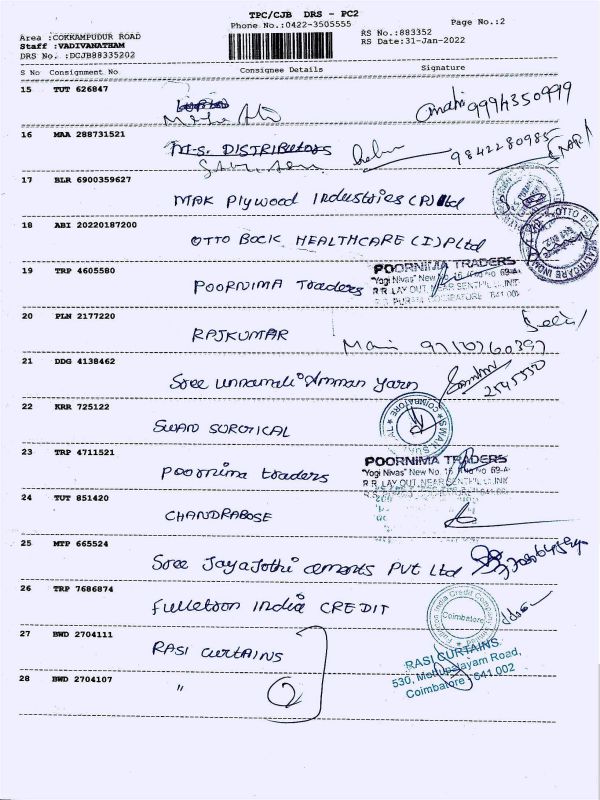 TPC/CJB DRS - PC2
Phone No.:0422-3505555
Page No.:2
Area :COKKAMPUDUR ROAD
Staff :VADIVANATHAM
DRS No. :DCJB88335202
RS No.:883352
RS Date:31-Jan-2022
S No Consignment No Consignee Details Signature
15 TUT 626847
9994350919
16 MAA 288731521
M.S. DISTRIBUTORS
9842280985
17 BLR 6900359627
MAK Plywood Industries (P) Ltd
18 ABI 20220187200
OTTO BOCK HEALTHCARE (I) P Ltd
19 TRP 4605580
POORNIMA Traders
POORNIMA TRADERS
"Yogi Nivas" New No. 16,
R.R. LAY OUT, NEAR
COIMBATORE - 641 002
20 PLN 2177220
RAJKUMAR
Mani
21 DDG 4138462
Sree unnamali Amman yarn
2545550
22 KRR 725122
SWAN SURGICAL
COIMBATORE
23 TRP 4711521
Poornima traders
POORNIMA TRADERS
"Yogi Nivas" New No. 16,
R.R. LAY OUT, NEAR
24 TUT 851420
CHANDRABOSE
25 MTP 665524
Sree JayaJothi cements PVT Ltd
26 TRP 7686874
Fulleton India CREDIT
Coimbatore
27 BWD 2704111
RASI CURTAINS
28 BWD 2704107
"
2
RASI CURTAINS
530, Mettupalayam Road,
Coimbatore - 641 002